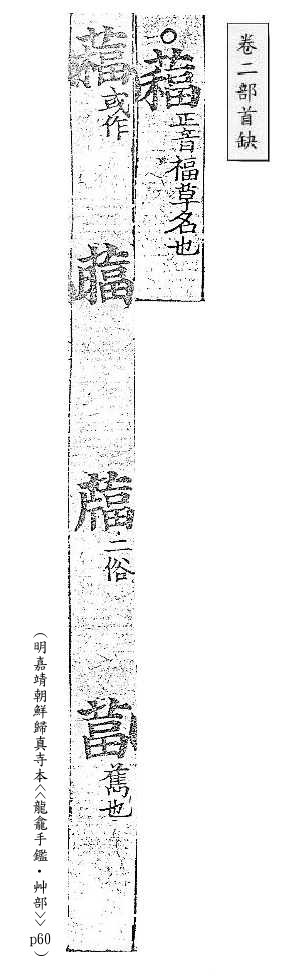 卷二部首缺
○ 正音福草名也
或作 二俗 葍 舊也
(明嘉靖朝鮮歸真寺本<<龍龕手鑑·艸部>> p60)